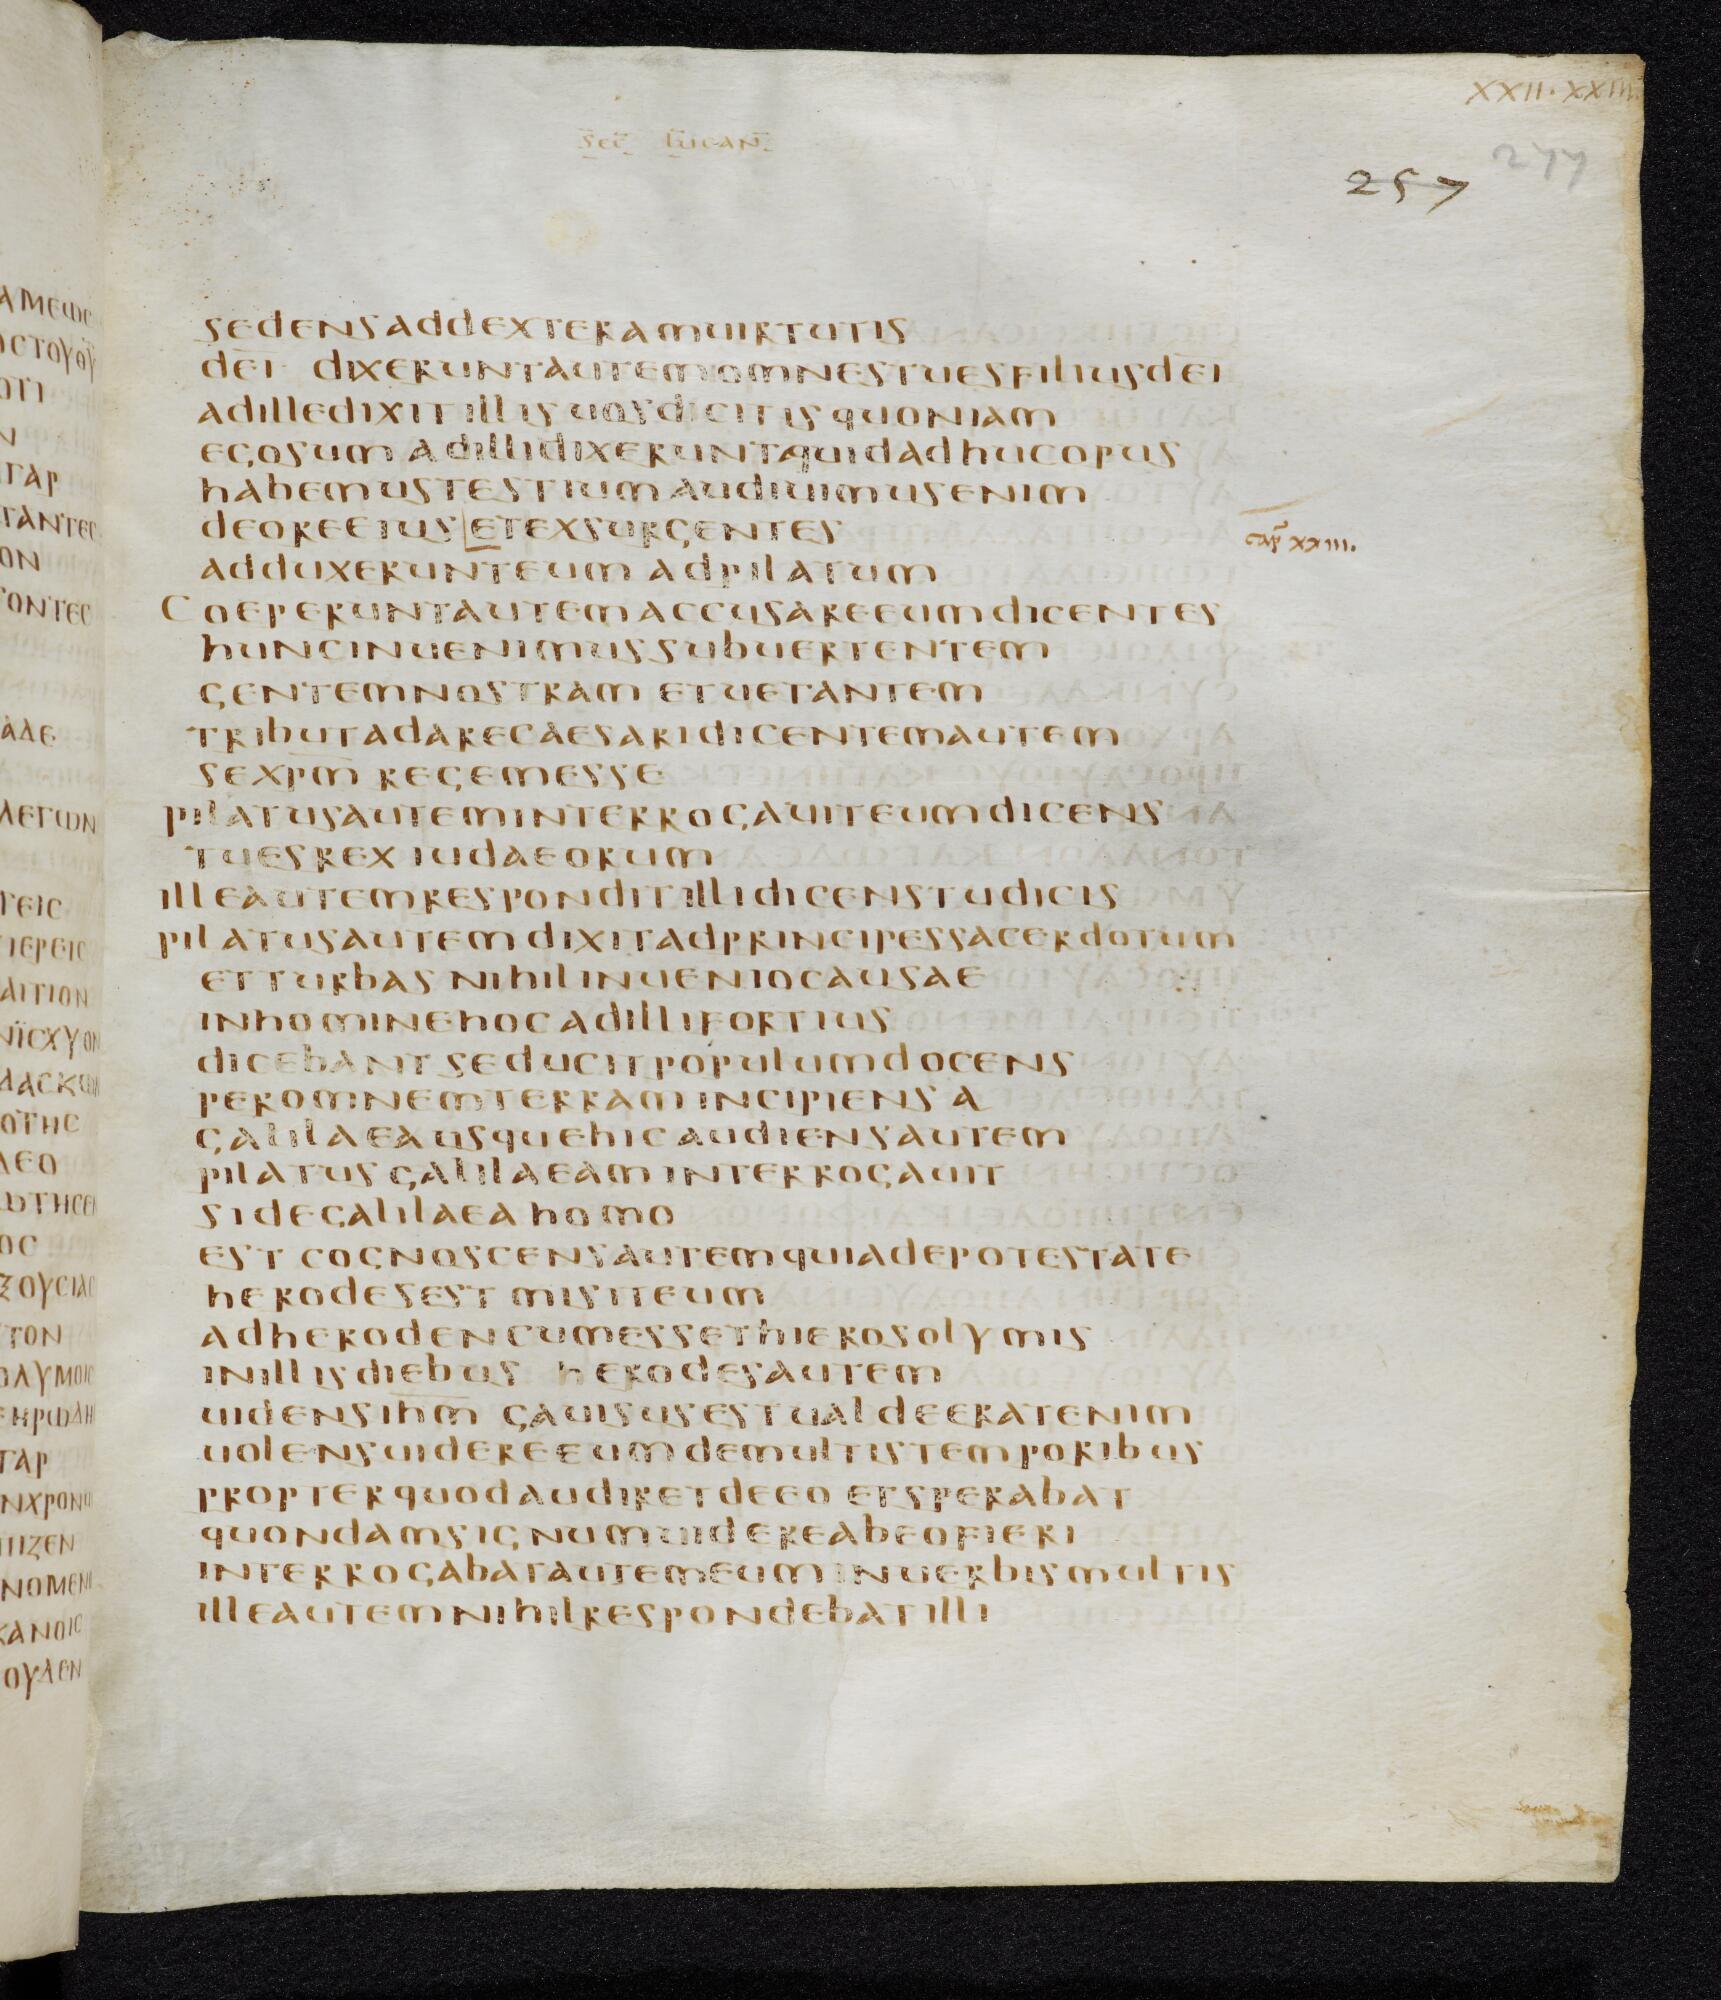 XXII·XXIII.
sec lucan
257
277
sedensaddexteramuirtutis
dei dixeruntautemomnestuesfiliusdei
adilledixitillisuosdicitisquoniam
egosum adillidixeruntquidadhucopus
habemustestiumaudiuimusenim
deoreeius etexsurgentes
cap xxiii.
adduxerunteum adpilatum
Coeperuntautemaccusareeumdicentes
huncinuenimussubuertentem
gentemnostram etuetantem
tributadarecaesaridicentemautem
sexpm regemesse
pilatusauteminterrogauiteumdicens
tuesrex iudaeorum
illeautemrespondititillidicenstudicis
pilatusautemdixitadprincipessacerdotum
etturbas nihilinueniocausae
inhominehoc adillifortius
dicebant seducitpopulumdocens
peromnemterramincipiens a
galilaeausquehicaudiensautem
pilatus galilaeaminterrogauit
sidegalilaea homo
est cognoscensautemquiadepotestate
herodesest misiteum
adherodencumessethierosolymis
inillisdiebus herodesautem
uidensihm gauisusestualdeeratenim
uolensuidereeumdemultistemporibus
propterquodaudiretdeeo etsperabat
quondamsignumuidereabeofieri
interrogabatautemeuminuerbismultis
illeautemnihilrespondebatilli